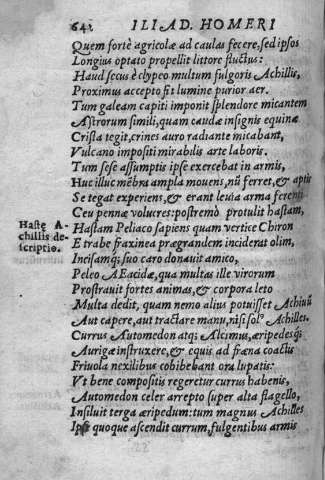 642 ILIAD. HOMERI
Quem fortè agricolæ ad caulas fecere, sed ipsos
Longius optato propellit littore fluctus:
Haud secus è clypeo multum fulgoris Achillis,
Proximus accepto fit lumine purior aer.
Tum galeam capiti imponit splendore micantem
Astrorum simili, quam caudæ insignis equinæ
Crista tegit, crines auro radiante micabant,
Vulcano impositi mirabilis arte laboris.
Tum sese assumptis ipse exercebat in armis,
Huc illuc mẽbra ampla movens, nũ ferret, & aptè
Se tegat experiens, & erant levia arma ferenti
Ceu pennæ volucres: postremò protulit hastam,
Haste A-
chillis de-
scriptio.
Hastam Peliaco sapiens quam vertice Chiron
E trabe fraxinea prægrandem inciderat olim,
Incisamq; suo caro donavit amico,
Peleo AEacidæ, qua multas ille virorum
Prostravit fortes animas, & corpora leto
Multa dedit, quam nemo alius potuisset Achivũ
Aut capere, aut tractare manu, nisi solº Achilles.
Currus Automedon atqȝ Alcimus, æripedesqȝ
Aurigæ instruxere, & equis ad fræna coactis
Frivola nexilibus cohibebant ora lupatis:
Vt bene compositis regeretur currus habenis,
Automedon celer arrepto super alta flagello,
Insiluit terga æripedum: tum magnus Achilles
Ipse quoque ascendit currum, fulgentibus armis